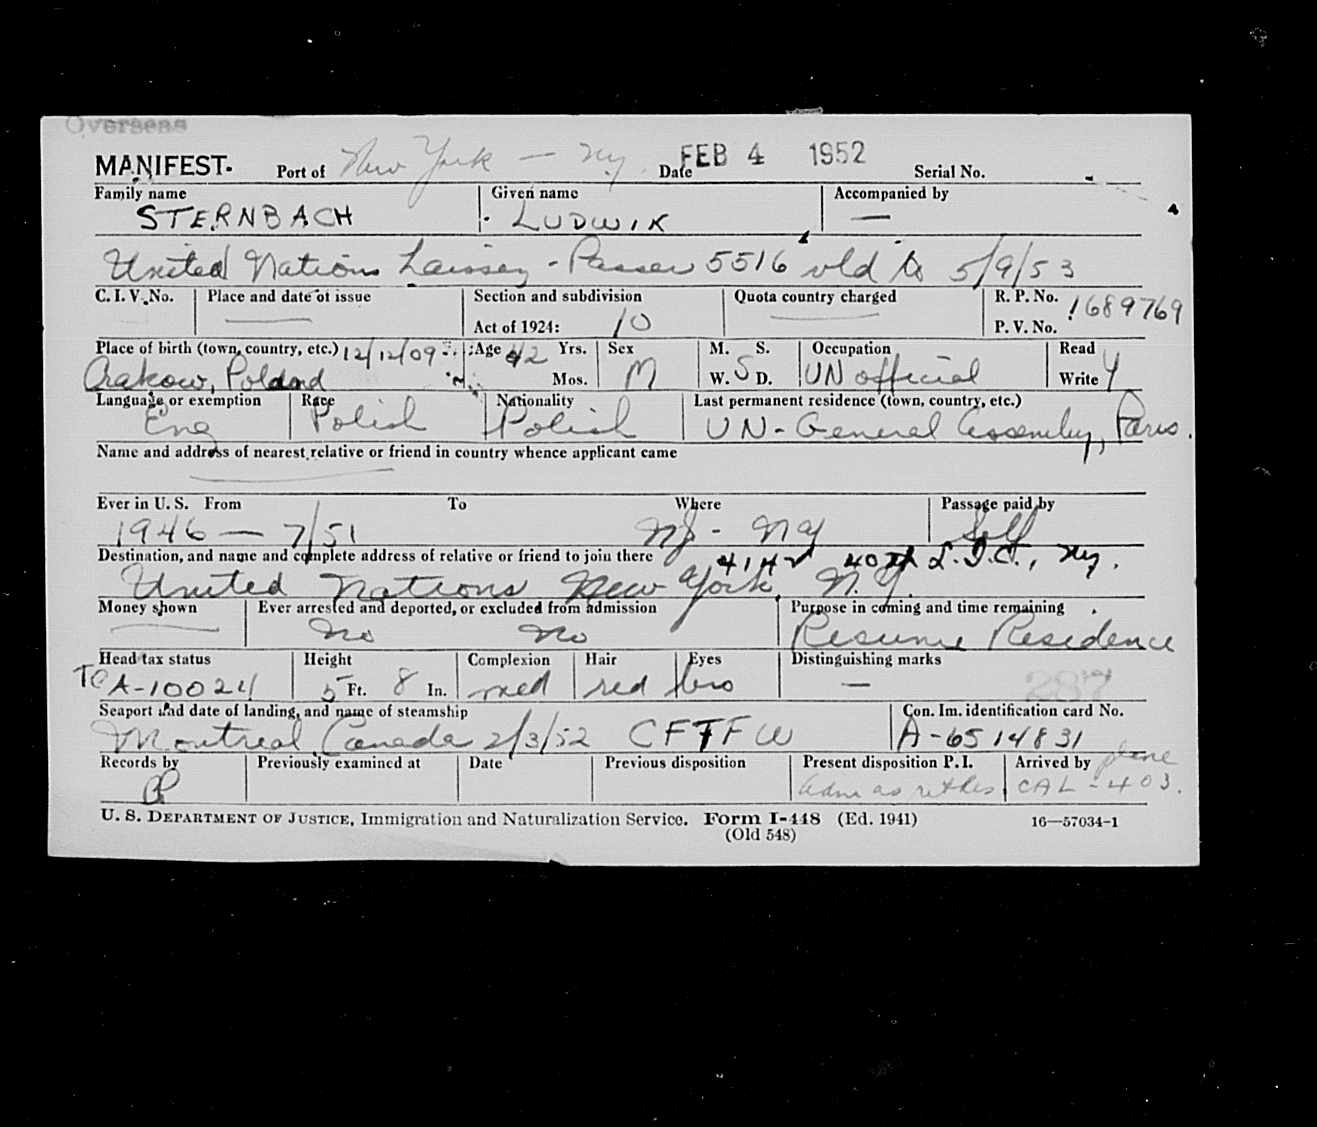 Overseas
MANIFEST. Port of New York — NY. Date FEB 4 1952 Serial No.
Family name Given name Accompanied by
STERNBACH LUDWIK —
United Nations Laissez-Passer 5516 vld to 5/9/53
C. I. V. No. Place and date of issue Section and subdivision Quota country charged R. P. No. 1689769
Act of 1924: 10 P. V. No.
Place of birth (town, country, etc.) 12/12/09 Age 42 Yrs. Sex M. S. Occupation Read
Crakow, Poland Mos. M W. S D. UN official Write Y
Language or exemption Race Nationality Last permanent residence (town, country, etc.)
Eng Polish Polish UN-General Assembly, Paris.
Name and address of nearest relative or friend in country whence applicant came
Ever in U. S. From To Where Passage paid by
1946 — 7/51 NJ - NY Self
Destination, and name and complete address of relative or friend to join there 4142 40th L.I.C., NY.
United Nations New York, N.Y.
Money shown Ever arrested and deported, or excluded from admission Purpose in coming and time remaining
No No Resume Residence
Head tax status Height Complexion Hair Eyes Distinguishing marks
TC A-10024 5 Ft. 8 In. med red bro — 287
Seaport and date of landing, and name of steamship Con. Im. identification card No.
Montreal Canada 2/3/52 CFTFW A-6514831
Records by Previously examined at Date Previous disposition Present disposition P. I. Arrived by plane
adm as ret res CAL-403.
U. S. DEPARTMENT OF JUSTICE, Immigration and Naturalization Service. Form I-448 (Ed. 1941) 16—57034-1
(Old 548)